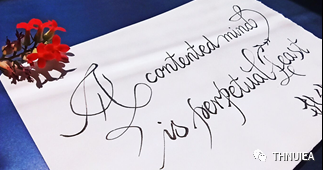 A contented mind
is perpetual feast
THNUIEA